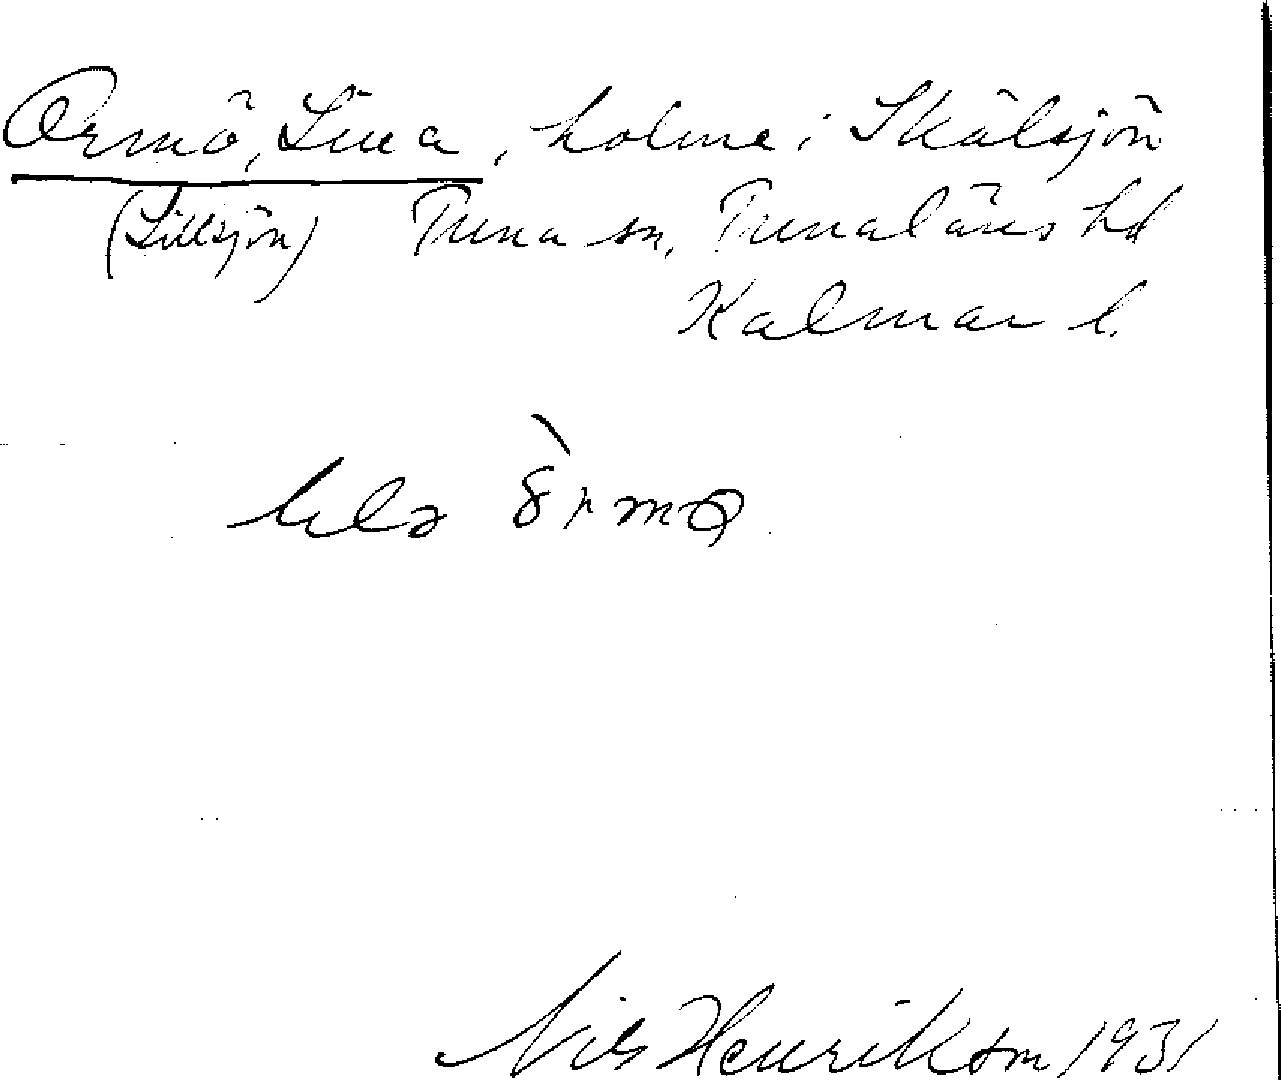 Ormö, Lilla, holme i Skälsjön
(Lillsjön) Tuna sn, Tunaläns hd
Kalmar l.
lilla
Nils Henrikson 1931